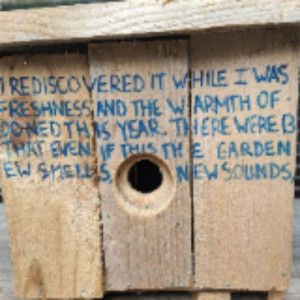 I REDISCOVERED IT WHILE I WAS
FRESHNESS AND THE WARMTH OF
DONED THIS YEAR. THERE WERE B
THAT EVEN IF THIS THE GARDEN
EW SMELLS, NEW SOUNDS,